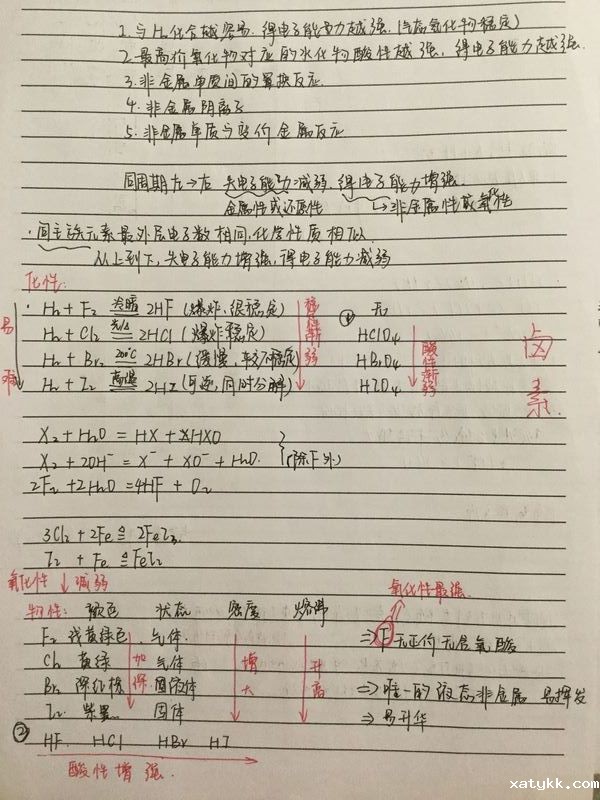 1. 与H₂化合越容易，得电子能力越强.（气态氢化物稳定）
2. 最高价氧化物对应的水化物酸性越强，得电子能力越强.
3. 非金属单质间的置换反应.
4. 非金属阴离子
5. 非金属单质与变价金属反应
同周期左→右 失电子能力减弱. 得电子能力增强.
金属性或还原性 → 非金属性或氧化性
·同主族元素最外层电子数相同，化学性质相似
从上到下，失电子能力增强，得电子能力减弱
化性:
易
难
H₂ + F₂ 冷暗 2HF (爆炸，很稳定)
H₂ + Cl₂ 光/点 2HCl (爆炸 稳定)
H₂ + Br₂ 200℃ 2HBr (缓慢，较不稳定)
H₂ + I₂ 高温 2HI (可逆，同时分解)
稳定性渐弱
① 无
HClO₄
HBrO₄
HIO₄
酸性渐弱
卤素
X₂ + H₂O = HX + HXO
X₂ + 2OH⁻ = X⁻ + XO⁻ + H₂O. (除F外)
2F₂ + 2H₂O = 4HF + O₂
3Cl₂ + 2Fe ≜ 2FeI₃.
I₂ + Fe ≜ FeI₂
氧化性 ↓ 减弱
氧化性最强.
物性: 颜色 状态 密度 熔沸
F₂ 浅黄绿色 气体. ⇒ F 无正价 无含氧酸
Cl₂ 黄绿 气体
Br₂ 深红棕 液体 ⇒ 唯一的液态非金属 易挥发
I₂ 紫黑 固体 ⇒ 易升华
加深
增大
升高
② HF HCl HBr HI
酸性增强.
xatykk.com